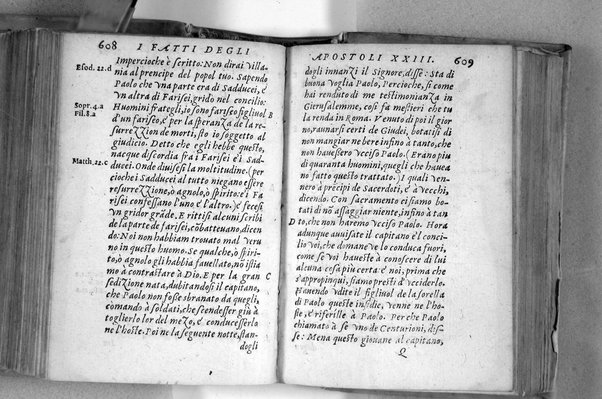 608 I FATTI DEGLI
Esod. 22.d
Impercioche è scritto: Non dirai villa-
nia al prencipe del popol tuo. Sapendo
Paolo che vna parte era di Sadducei, e
vn altra di Farisei, grido nel concilio:
Sopr. 4.a
Fil. 8.a
Huomini fratagli, io sono fariseo figliuol B
d'un fariseo, e per la speranza de la re-
surrezzion de morti, sto io soggetto al
giudicio. Detto che egli hebbe questo,
nacque discordia fra i Farisei è i Sad-
Matth. 22.c
ducei. Onde diuisesi la moltitudine. (per
ciochei Sadducei al tutto niegano essere
resurrezzione, ò agnolo, ò spirito: e i Fa
risei confessano l'uno è l'altro.) è fecesi
vn gridor grāde. E rittisi alcuni scribi
de la parte de farisei, cōbatteuano, dicen
do: Noi non habbiam trouato mal veru
no in questo huomo. Se qualche, ò spiri-
to, ò agnolo gli habbia fauellato, nō istia
mo à contrastare à Dio. E per la gran C
sedizione nata, dubitandosi il capitano,
che Paolo non fosse sbranato da quegli,
comando à soldati, che scendesser giù à
toglierlo lor del mezo, è conducesserlo
ne l'hoste. Poi ne la seguente notte, stan-
dogli
APOSTOLI XXIII. 609
dogli innanzi il Signore, disse: Sta di
buona voglia Paolo, Percioche, si come
hai renduto di me testimonianza in
Gierusalemme, cosi fa mestieri che tu
la renda in Roma. Venuto di poi il gior
no, raunarsi certi de Giudei, botatisi di
non mangiar ne bere infino à tanto, che
non hauessero vcciso Paolo. (Erano piu
di quaranta huomini, quegli che hauea
no fatto questo trattato.) I quali ven-
nero à prēcipi de Sacerdoti, è à vechi,
dicendo. Con sacramento ci siamo bo-
tati di nō assaggiar niente, infino à tan
D to, che non haremo vcciso Paolo. Hora
adunque auuisate il capitano è'l conci-
lio voi, che domane ve lo conduca fuori,
come se voi haueste à conoscere di lui
alcuna cosa piu certa: è noi, prima che
s'appropinqui, siamo presti d'vcciderlo.
Hauendo vdite il figliuol de la sorella
di Paolo queste insidie, venne ne l'ho-
ste, è riferille à Paolo. Perche Paolo
chiamato à se vno de Centurioni, dis-
se: Mena questo giouane al capitano,
Q